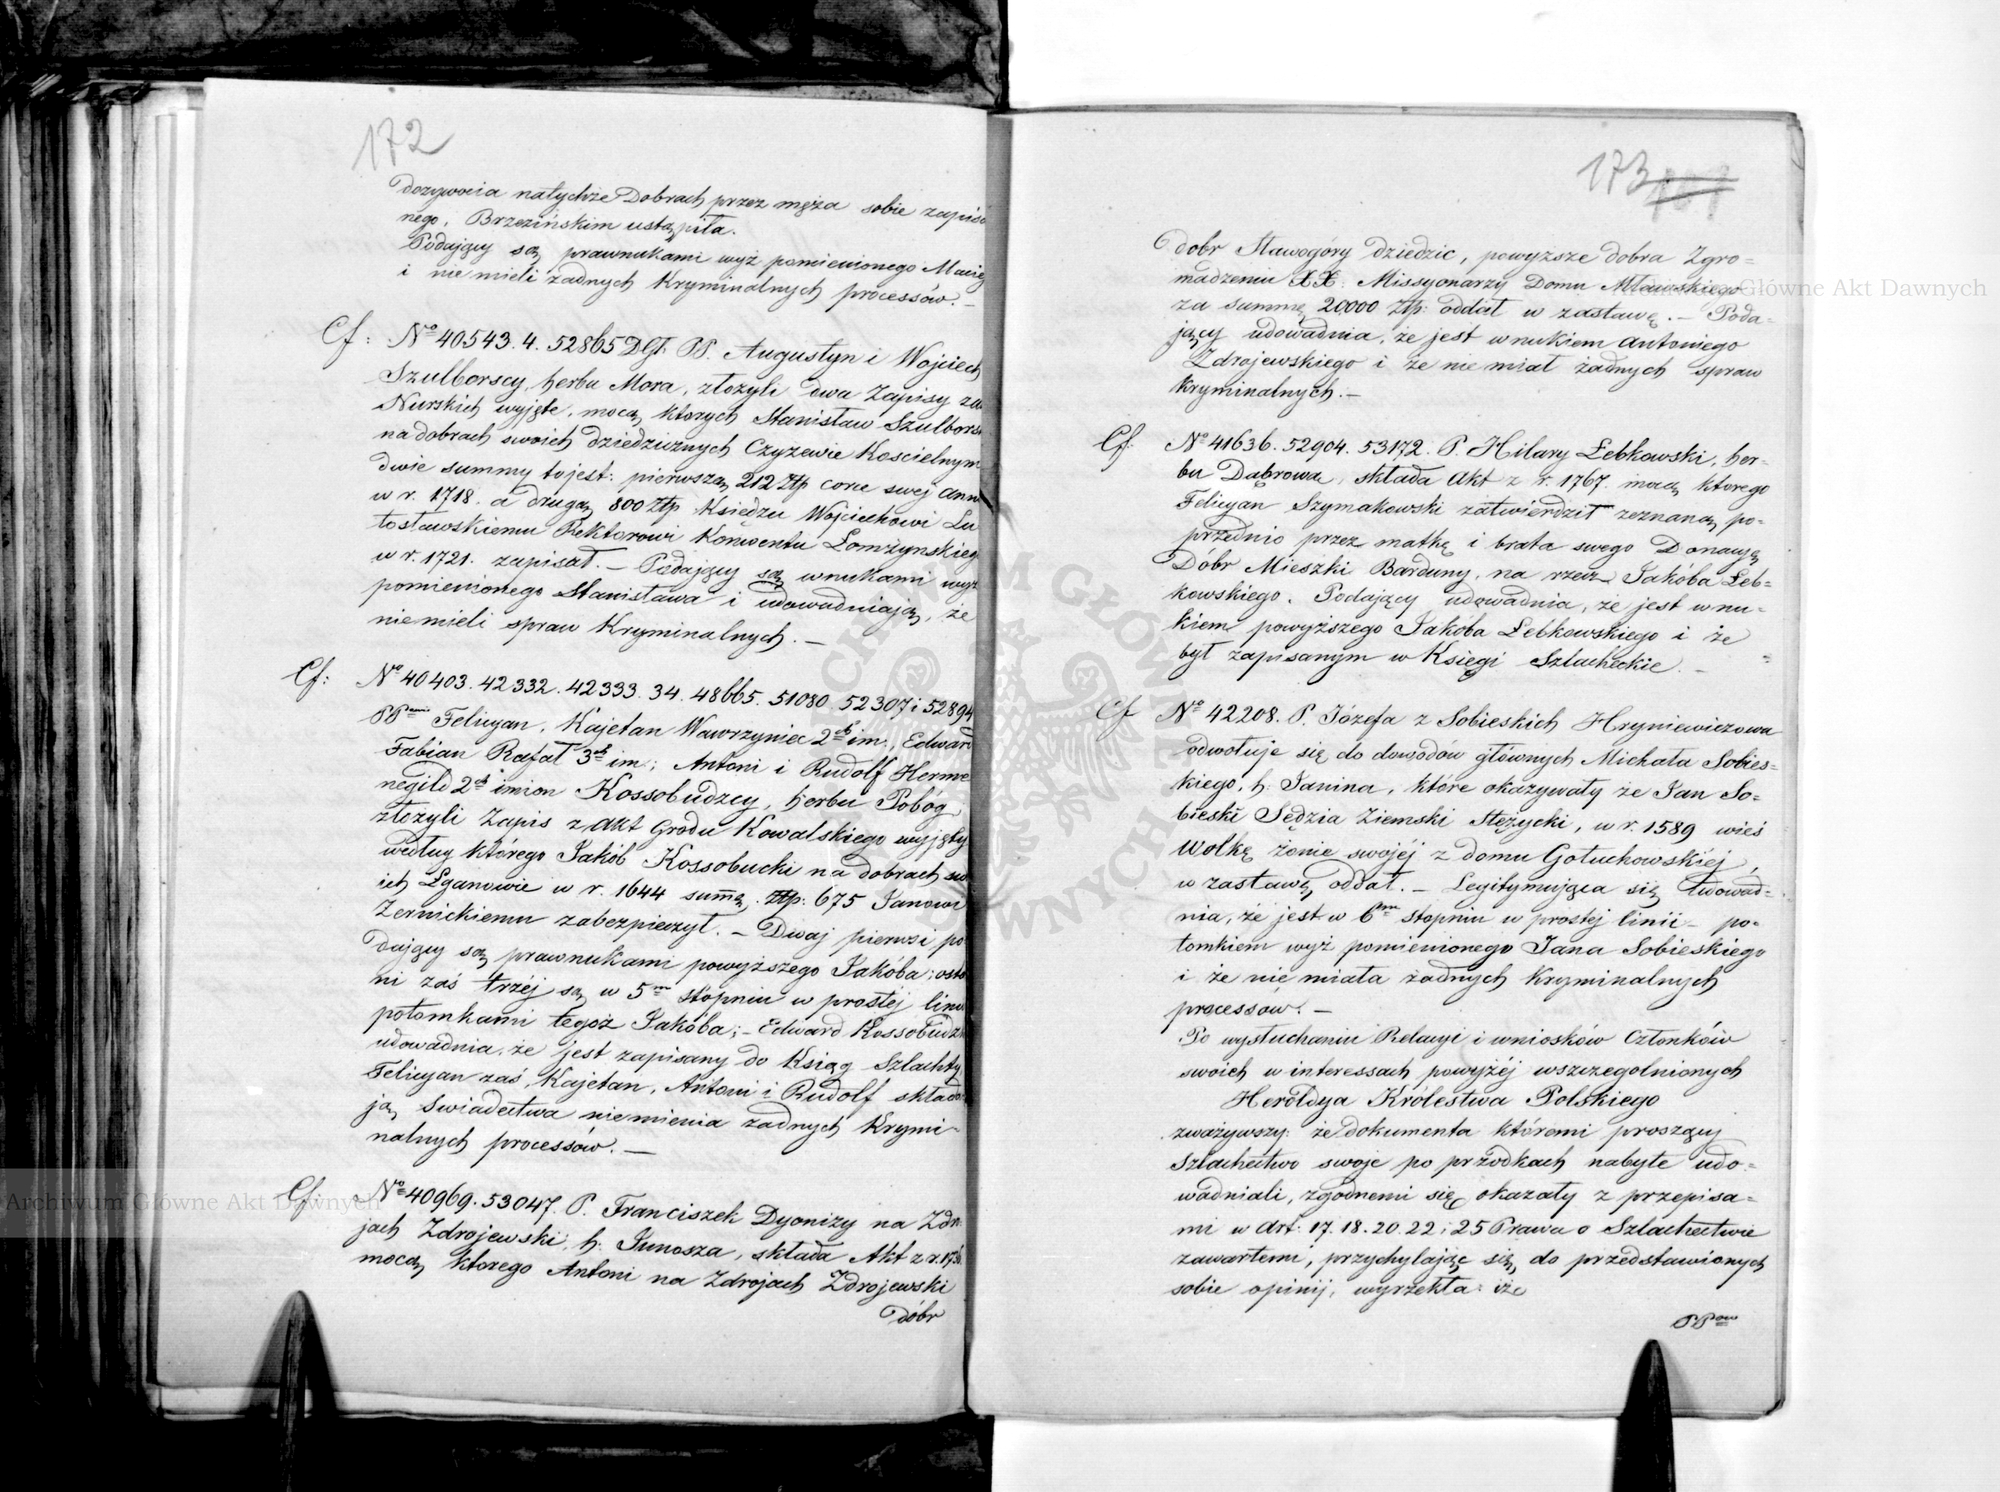 172
dożywocia natychże Dobrach przez męża sobie zapisa
nego, Brzezińskim ustąpiła.
Podający są prawnukami wyż pomienionego Maciej
i nie mieli żadnych Kryminalnych processów. —
Cf: No 40543. 4. 52865 DGł. PP. Augustyn i Wojciech
Szulborscy, herbu Mora, złożyli dwa Zapisy za
Nurskich wyjęte, mocą których Stanisław Szulbors
na dobrach swoich dziedzicznych Czyżewie Kościelnym
dwie summy to jest: pierwszą 212 Złp corce swej Ann
w r. 1718. a drugą 800 Złp Księdzu Wojciechowi Lu
tosławskiemu Rektorowi Konwentu Łomżynskieg
w r. 1721. zapisał. — Podający są wnukami wyż
pomienionego Stanisława i udowadniają, że
niemieli spraw Kryminalnych. —
Cf: No 40403. 42332. 42333. 34. 48665. 51080. 52307 i 52894
PPami Felicyan, Kajetan Wawrzyniec 2ch im., Edward
Fabian Rafał 3ch im; Antoni i Rudolf Herme
negild 2ch imion Kossobudzcy, herbu Pobóg
złożyli Zapis z akt Grodu Kowalskiego wyjęty
według którego Jakób Kossobucki na dobrach sw
ich Łganowie w r. 1644 summę. Złp: 675 Janowi
Żernickiemu zabezpieczył. — Dwaj pierwsi po
dający są prawnukami powyższego Jakóba; osta
ni zaś trzéj są w 5m stopniu w prostéj linii
potomkami tegoż Jakóba; — Edward Kossobudzk
udowadnia, że jest zapisany do Ksiąg Szlachty
Felicyan zaś, Kajetan, Antoni i Rudolf składa
ją świadectwa niemienia żadnych Krymi-
nalnych processów. —
Cf. No 40969. 53047. P. Franciszek Dyonizy na Zdro
jach Zdrojewski, h. Junosza, składa Akt z r. 17
mocą ktorego Antoni na Zdrojach Zdrojewski
Dóbr
173
dóbr Sławogóry dziedzic, powyższe dobra Zgro-
madzeniu XX. Missyonarzy Domu Mławskiego
za summę 20,000 Złp: oddał w zastawę. — Poda-
jący udowadnia, że jest wnukiem Antoniego
Zdrojewskiego i że nie miał żadnych spraw
kryminalnych. —
Cf. No 41636. 52904. 53172. P. Hilary Łebkowski, her-
bu Dąbrowa, składa Akt z r. 1767. mocą ktorego
Felicyan Szymakowski zatwierdził zeznaną po-
przednio przez matkę i brata swego Donacyą
Dóbr Mieszki Barduny, na rzecz Jakóba Łeb-
kowskiego. Podający udowadnia, że jest wnu-
kiem powyższego Jakóba Łebkowskiego i że
był zapisanym w Księgi Szlacheckie. —
Cf No 42208. P. Józefa z Sobieskich Hryniewiczowa
odwołuje się do dowodów głównych Michała Sobies-
kiego, h. Janina, które okazywały że Jan So-
bieski Sędzia Ziemski Stężycki, w r. 1589 wieś
Wolkę żonie swojéj z domu Gołuchowskiéj,
w zastawę oddał. — Legitymująca się udowad-
nia, że jest w 6m stopniu w prostéj linii — po-
tomkiem wyż pomienionego Jana Sobieskiego
i że nie miała żadnych Kryminalnych
processów. —
Po wysłuchaniu Relacyi i wniosków Członków
swoich w interessach powyżéj wszczególnionych
Heroldya Królestwa Polskiego
zważywszy: że dokumenta któremi proszący
Szlachectwo swoje po przodkach nabyte udo-
wadniali, zgodnemi się okazały z przepisa-
mi w Art: 17. 18. 20. 22 i 25 Prawa o Szlachectwie
zawartemi, przychylając się do przedstawionych
sobie opinij, wyrzekła: iże
PPow
Archiwum Główne Akt Dawnych